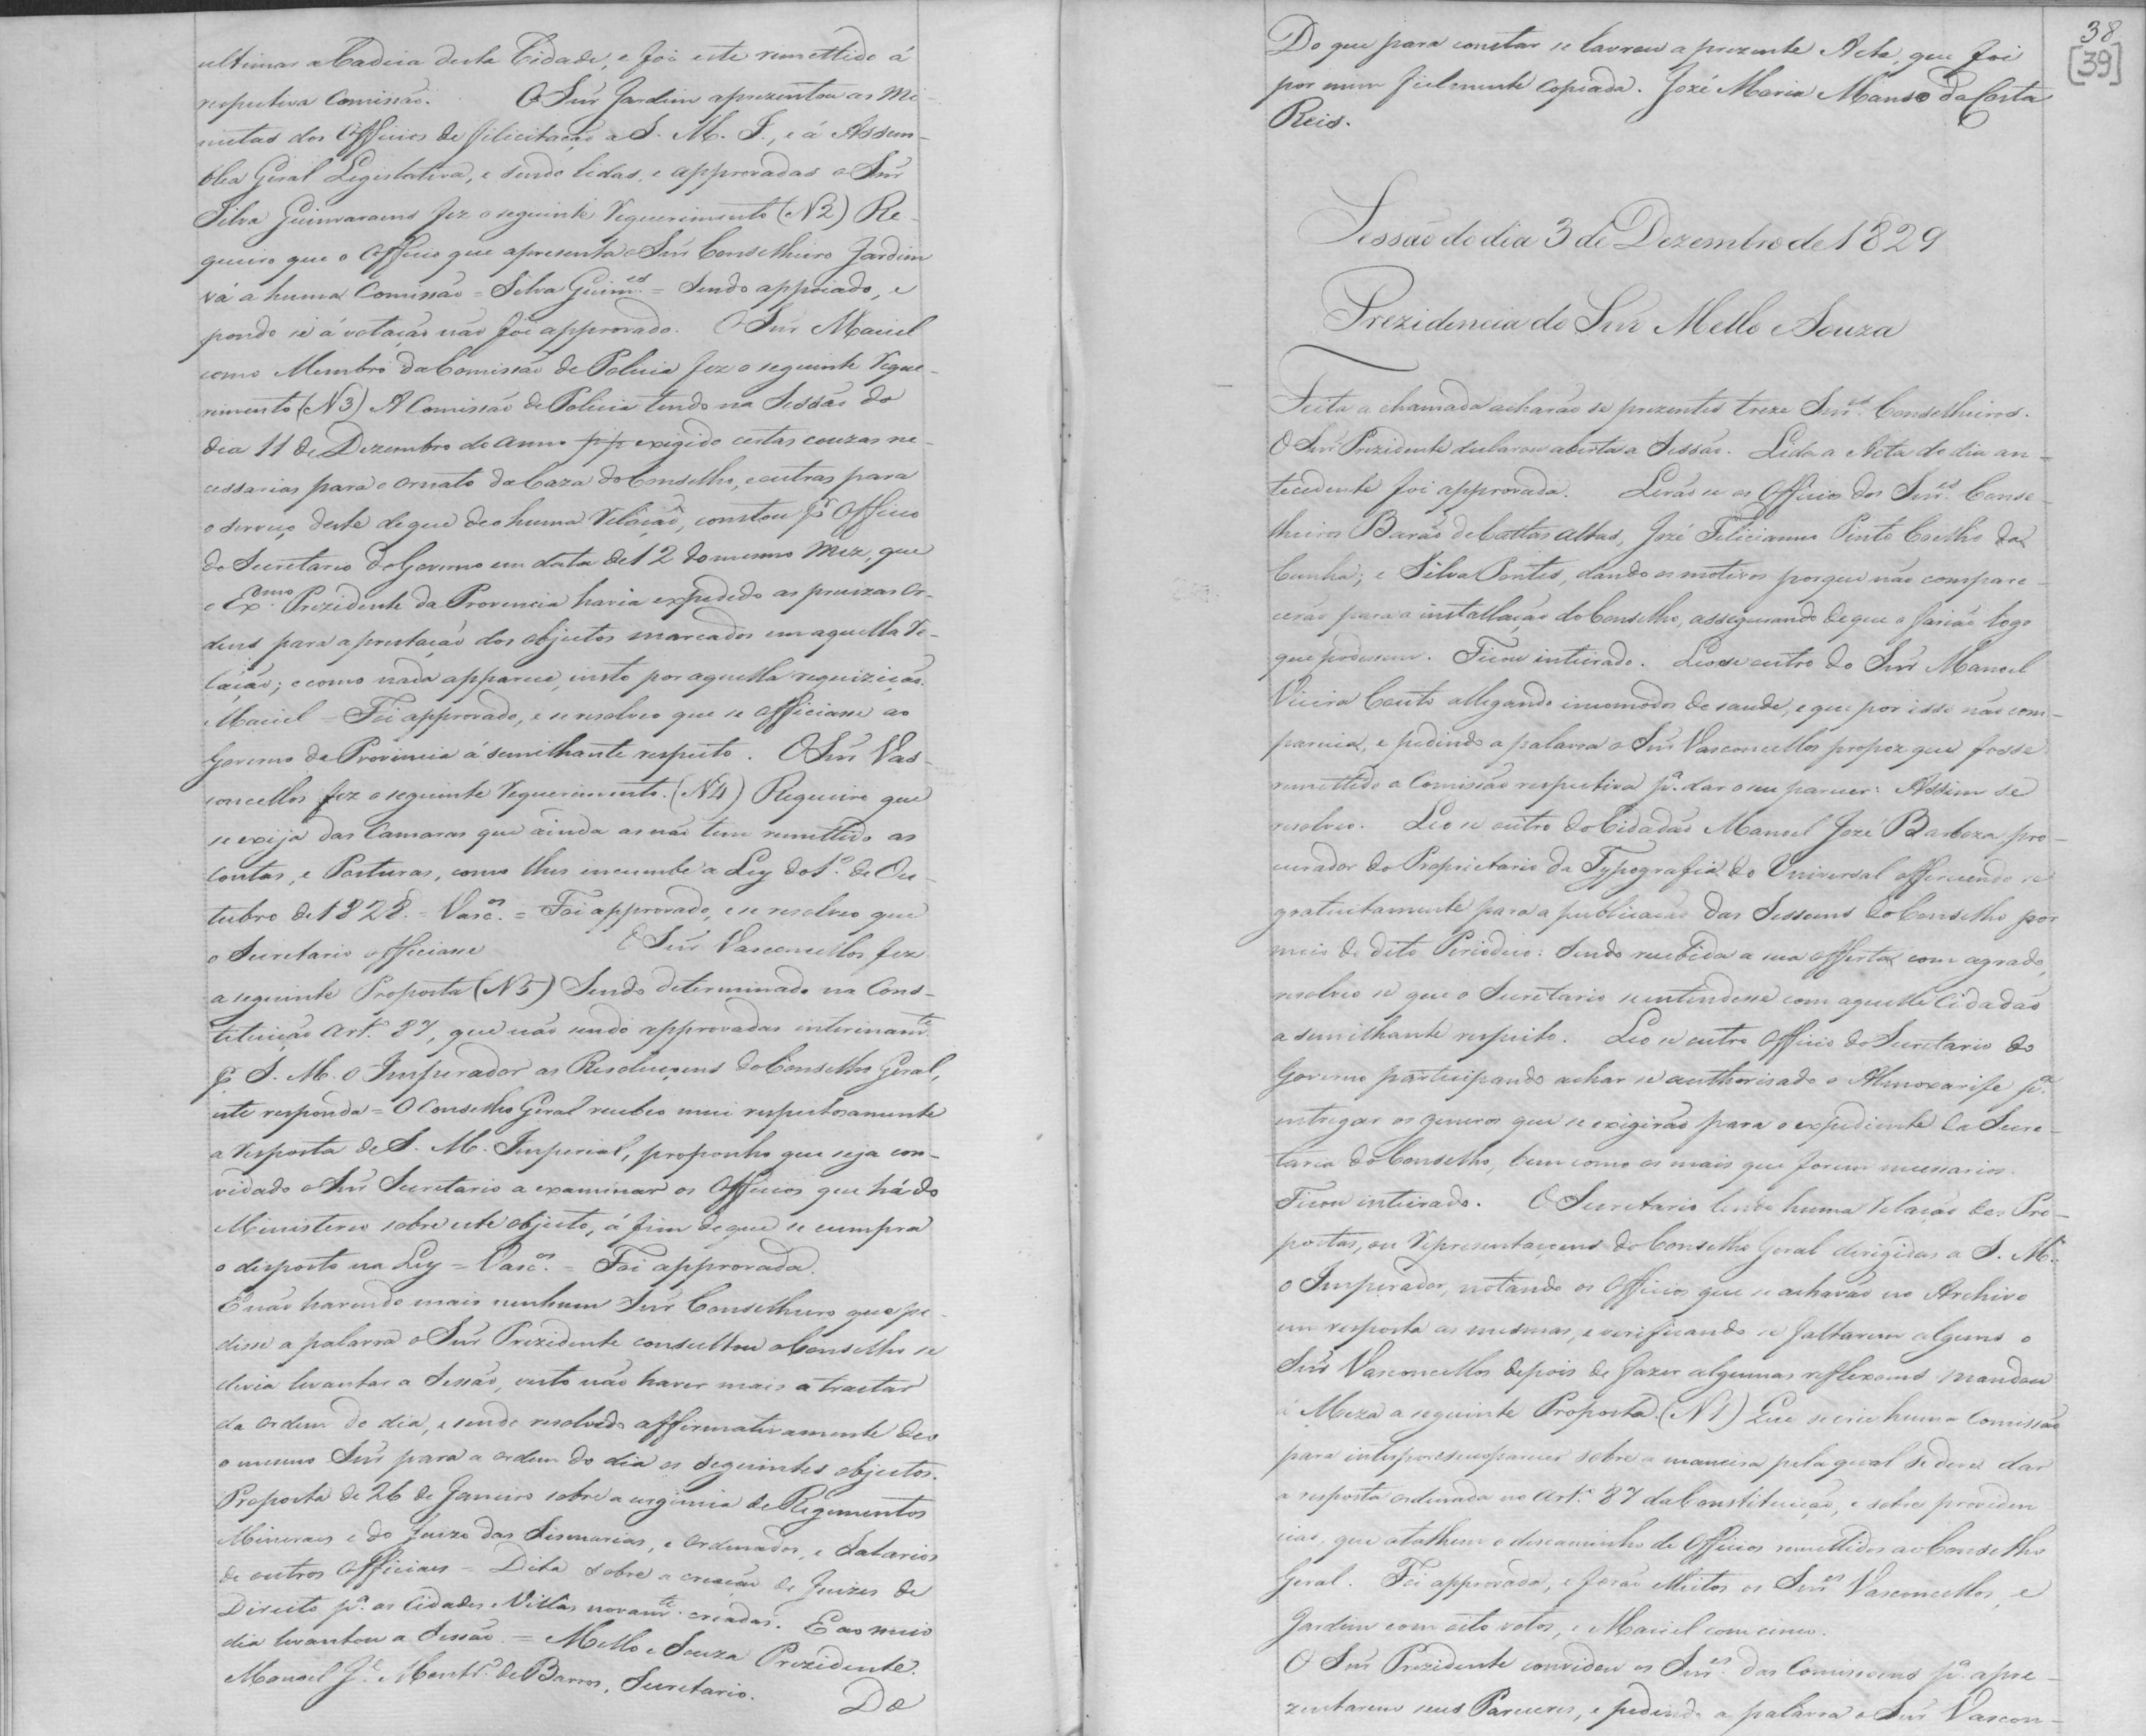 ultimas a Cadeia desta Cidade, e foi este remettido á
respectiva Comissaõ. O Snr̃ Jardim aprezentou as Mi-
nutas dos Officios de filicitaçaõ a S. M. I., e á Assem-
blea Geral Legislativa, e sendo lidas, e approvadas o Snr̃
Silva Guimaraens fez o seguinte Requerimento (N2) Re-
queiro que o Officio que apresenta o Snr̃ Conselheiro Jardim
vá a huma Comissaõ = Silva Guim.es = Sendo appoiado, e
pondo se á votaçaõ naõ foi approvado. O Snr̃ Maciel
como Membro da Comissaõ de Policia fez o seguinte Reque-
rimento (N3) A Comissaõ de Policia tendo na Sessaõ do
dia 11 de Dezembro do anno pp exigido certas couzas ne-
cessarias para o ornato da Caza do Conselho, e outras para
o serviço deste de que deo huma Relaçaõ, constou pr Officio
do Secretario do Governo em data de 12 do mesmo mez, que
o Ex.mo Prezidente da Provencia havia expedido as precizas Or-
dens para a prestaçaõ dos objectos marcados em aquella Re-
laçaõ; e como nada apparece, insto por aquella requiziçaõ.
Maciel = Foi approvado, e se resolveo que se officiasse ao
Governo da Provincia á semilhante respeito. O Snr̃ Vas-
concellos fez o seguinte Requerimento. (N4) Requeiro que
se exija das Camaras que ainda as naõ tem remettido as
Contas, e Posturas, como lhes incumbe a Ley do 1.º de Ou-
tubro de 1828. = Vasc.os = Foi approvado, e se resolveo que
o Secretario officiasse O Snr̃ Vasconcellos fez
a seguinte Proposta (N5) Sendo determinado na Cons-
tituiçaõ Art. 87, que naõ sendo approvadas interinam.te
pr S. M. O Imperador as Resoluçoens do Conselho Geral,
este responda = O Conselho Geral recebeo mui respeitosamente
a resposta de S. M. Imperial, proponho que seja con-
vidado o Snr̃ Secretario a examinar os Officios que há do
Ministerio sobre este objecto, á fim de que se cumpra
o disposto na Ley = Vasc.os = Foi approvada.
E naõ havendo mais nenhum Snr̃ Conselheiro que pe-
disse a palavra o Snr̃ Prezidente consultou o Conselho se
devia levantar a Sessaõ, visto naõ haver mais a tractar
da ordem do dia, e sendo resolvido affirmativamente deo
o mesmo Snr̃ para a ordem do dia os seguintes objectos.
Proposta de 26 de Janeiro sobre a urgencia de Regimentos
Mineraes e do Juizo das Sismarias, e Ordenados, e Salarios
de outros Officiaes = Dita sobre a creaçaõ de Juizes de
Direito p.a as Cidades e Villas novam.te creadas. E ao meio
dia levantou a Sessaõ = Mello e Souza Prezidente.
Manoel J.e Montr.o de Barros, Secretario.
Do
38
[39]
Do que para constar se lavrou a prezente Acta, que foi
por mim fielmente copiada. Jozé Maria Manso da Costa
Reis.
Sessaõ do dia 3 de Dezembro de 1829
Prezidencia do Snr̃ Mello e Souza
Feita a chamada acharaõ se prezentes treze Snr.es Conselheiros.
O Snr̃ Prezidente declarou aberta a Sessaõ. Lida a Acta do dia an-
tecedente foi approvada. Leraõ se os Officios dos Snr.es Conse-
lheiros Baraõ de Cattas Altas, Jozé Feliciano Pinto Coelho da
Cunha, e Silva Pontes, dando os motivos porque naõ compare-
ceraõ para a installaçaõ do Conselho, assegurando de que o fariaõ logo
que podessem. Ficou inteirado. Leo se outro do Snr̃ Manoel
Vieira Couto allegando incomodos de saude, e que por isso naõ com-
parecia, e pedindo a palavra o Snr̃ Vasconcellos propoz que fosse
remettido a Comissaõ respectiva p.a dar o seu parecer: Assim se
resolveo. Leo se outro do Cidadaõ Manoel Jozé Barboza pro-
curador do Proprietario da Typografia do Universal offerecendo se
gratuitamente para a publicaçaõ das Sessoens do Conselho por
meio do dito Periodico: Sendo recebida a sua offerta com agrado,
resolveo se que o Secretario se entendesse com aquelle Cidadaõ
a semilhante respeito. Leo se outro Officio do Secretario do
Governo participando achar se authorisado o Almoxarife p.a
entregar os generos que se exigiraõ para o expediente da Secre-
taria do Conselho, bem como os mais que forem necessarios.
Ficou inteirado. O Secretario lendo huma Relaçaõ das Pro-
postas, ou Representaçoens do Conselho Geral dirigidas a S. M.
O Imperador, notando os Officios que se achavaõ no Archivo
em resposta as mesmas, e verificando se faltarem alguns o
Snr̃ Vasconcellos depois de fazer algumas reflexoens mandou
á Meza a seguinte Proposta. (N1) Que se crie huma Comissaõ
para interpor o seu parecer sobre a maneira pela qual se deve dar
a resposta ordenada no Art.º 87 da Constituiçaõ, e sobre providen
cias, que atalhem o descaminho de Officios remettidos ao Conselho
Geral. Foi approvada, e foraõ eleitos os Snr.es Vasconcellos, e
Jardim com oito votos, e Maciel com cinco.
O Snr̃ Prezidente convidou os Snr.es das Comissoens p.a apre-
zentarem seus Pareceres, e pedindo a palavra o Snr̃ Vascon-